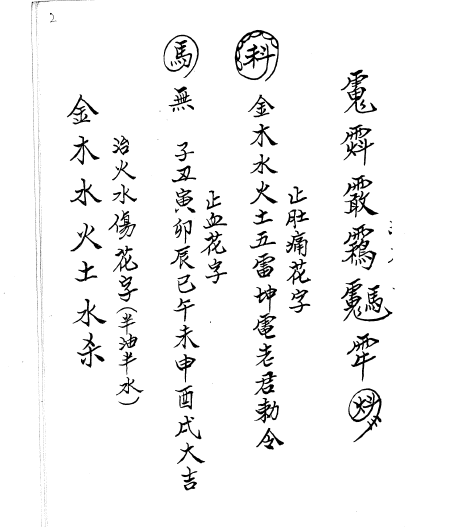 止肚痛花字
金木水火土五雷坤電老君勅令
止血花字
馬無 子丑寅卯辰巳午未申酉戌大吉
治火水傷花字(半油半水)
金木水火土水杀
2